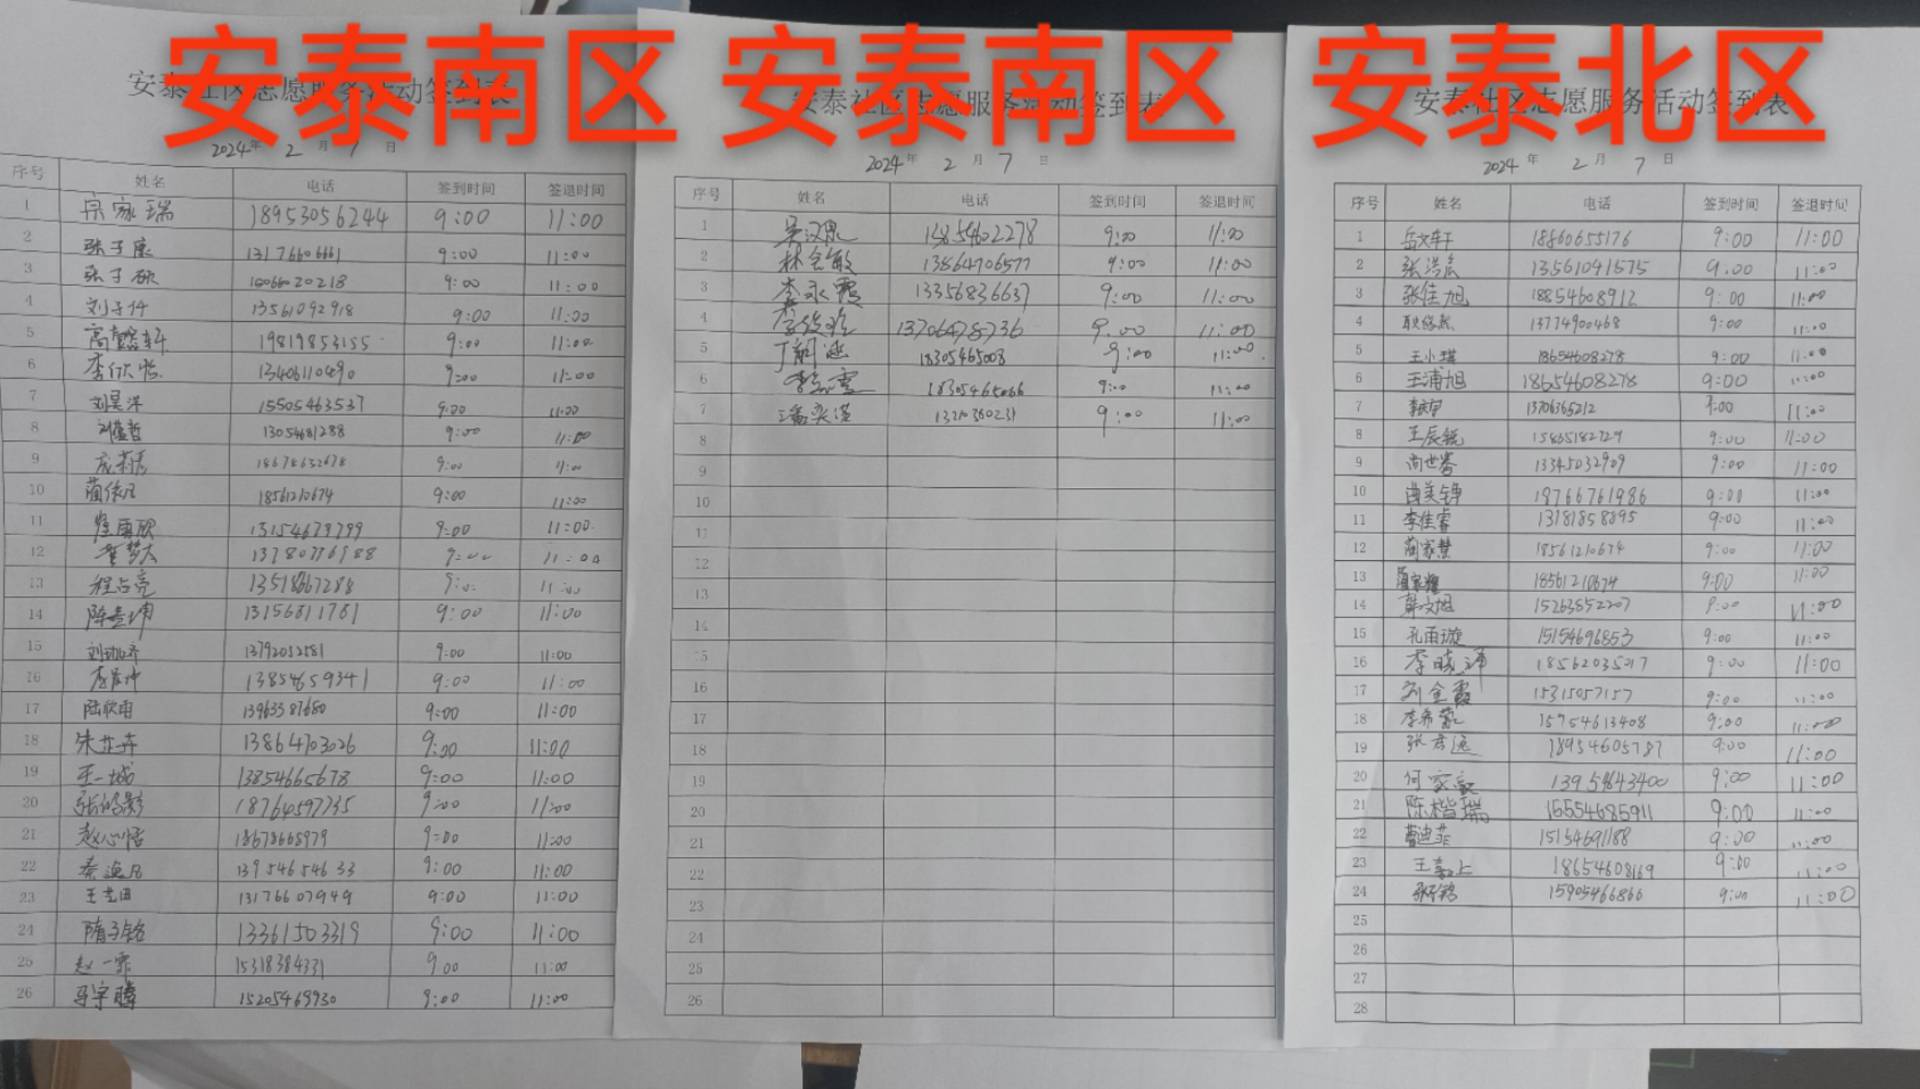 安泰南区 安泰南区 安泰北区
安泰社区志愿服务活动签到表
2024年 2月 7日
序号 姓名 电话 签到时间 签退时间
1 宗家瑞 18953056244 9:00 11:00
2 张子康 13176606661 9:00 11:00
3 张子硕 9:00 11:00
4 刘子仟 13561092918 9:00 11:00
5 19819853155 9:00 11:00
6 13406110490 9:00 11:00
7 刘昊洋 15505463537 9:00 11:00
8 刘蕴哲 13054681288 9:00 11:00
9 18678632678 9:00 11:00
10 18561210674 9:00 11:00
11 崔雨欣 13154679799 9:00 11:00
12 11:00
13 程占亮 13518667288 9:00 11:00
14 13156811781 9:00 11:00
15 13792052581 9:00 11:00
16 13854659341 9:00 11:00
17 陆欣雨 13963387680 9:00 11:00
18 朱芷卉 13864703026 9:00 11:00
19 王一城 13854665678 9:00 11:00
20 18764597735 9:00 11:00
21 赵心恬 18678668979 9:00 11:00
22 秦逸凡 13954654633 9:00 11:00
23 13176607949 9:00 11:00
24 隋子铭 13361503319 9:00 11:00
25 赵一霏 15318384331 9:00 11:00
26 马宇腾 15205469930 9:00 11:00
安泰社区志愿服务活动签到表
2024年 2月 7日
序号 姓名 电话 签到时间 签退时间
1 9:00 11:00
2 林会敏 13864706577 9:00 11:00
3 李永霞 13356836637 9:00 11:00
4 13706478736 9:00 11:00
5 18305465003 9:00 11:00
6 18305465066 9:00 11:00
7 9:00 11:00
8
9
10
11
12
13
14
15
16
17
18
19
20
21
22
23
24
25
26
安泰社区志愿服务活动签到表
2024年 2月 7日
序号 姓名 电话 签到时间 签退时间
1 岳文轩 18860655176 9:00 11:00
2 张浩辰 13561091575 9:00 11:00
3 张佳旭 18854608912 9:00 11:00
4 13774900468 9:00 11:00
5 王小琪 18654608278 9:00 11:00
6 王浦旭 18654608278 9:00 11:00
7 13706365212 9:00 11:00
8 王辰锐 15865182729 9:00 11:00
9 尚世睿 13345032909 9:00 11:00
10 曲美铮 18766761986 9:00 11:00
11 李佳睿 13181858895 9:00 11:00
12 蔺家慧 18561210674 9:00 11:00
13 蔺家耀 18561210674 9:00 11:00
14 韩文旭 15263852207 9:00 11:00
15 孔雨璇 15154696853 9:00 11:00
16 18562035017 9:00 11:00
17 刘金霞 15315057157 9:00 11:00
18 15954613408 9:00 11:00
19 张君逸 18954605787 9:00 11:00
20 何家毅 13954643400 9:00 11:00
21 陈楷瑞 15554685911 9:00 11:00
22 曹迪菲 15154691188 9:00 11:00
23 18654608169 9:00 11:00
24 15905466866 9:00 11:00
25
26
27
28